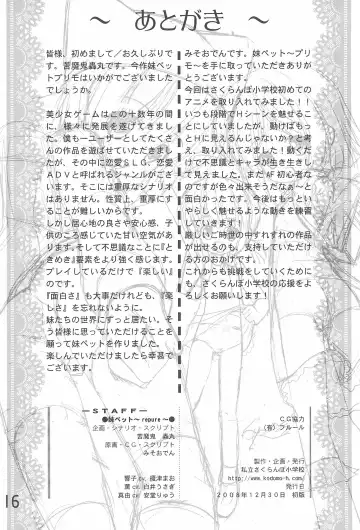 ～ あとがき ～
皆様、初めまして／お久しぶりで
す。言魔鬼轟丸です。今作妹ペッ
トプリモはいかがでございました
でしょうか。
美少女ゲームはこの十数年の間
に、様々に発展を遂げてきまし
た。僕も一ユーザーとしてたくさ
んの作品を遊ばせていただきまし
たが、その中に恋愛ＳＬＧ、恋愛
ＡＤＶと呼ばれるジャンルがござ
います。そこには重厚なシナリオ
はありません。性質上、重厚にす
ることが難しいからです。
しかし居心地の良さや安心感、子
供のころ感じていた甘い空気があ
ります。そして不思議なことに『と
きめき』要素をより強く感じます。
プレイしているだけで『楽しい』
のです。
『面白さ』も大事だけれども、『楽
しさ』を忘れないように。
妹たちの世界にずっと居たい。そ
う皆様に思っていただけることを
願って妹ペットを作りました。
楽しんでいただけましたら幸甚で
ございます。
みそおでんです。妹ペット～プリ
モ～を手に取っていただきありが
とうございます。
今回はさくらんぼ小学校初めての
アニメを取り入れてみました！！
いつも段階でＨシーンを魅せるこ
とにしていましたが、動けばもっ
とＨに見えるんじゃないか？と考
え、取り入れてみました！動くだ
けで不思議とキャラが生き生きし
て見えました。まだAF初心者な
のですが色々出来そうだなぁ～と
面白かったです。今後はもっとい
やらしく魅せるような動きを練習
していきます！
厳しいご時世の中すれすれの作品
が出せるのも、支持していただけ
る方のおかげです。
これからも挑戦をしていくために
も、さくらんぼ小学校の応援をよ
ろしくお願いします！
―ＳＴＡＦＦ―
●妹ペット～ repure ～●
企画・シナリオ・スクリプト
言魔鬼 轟丸
原画・ＣＧ・スクリプト
みそおでん
響子 cv. 榎津まお
薫 cv. 臼井うさぎ
真由 cv. 安堂りゅう
ＣＧ協力
（有）フルール
製作・企画・発行
私立さくらんぼ小学校
http://www.kodomo-h.com/
発行日
2008年12月30日 初版
16